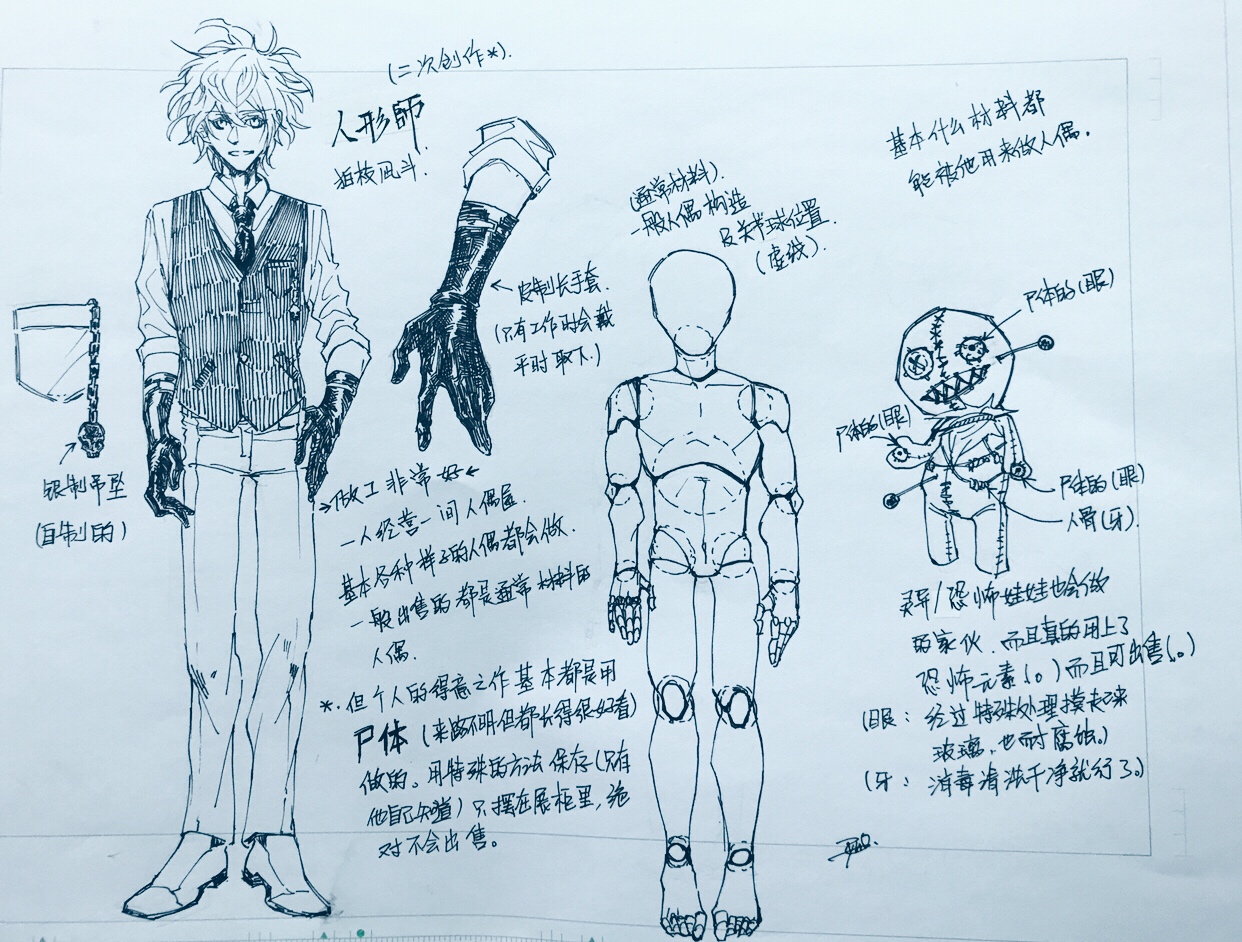 (二次创作*).
人形師.
狛枝凪斗.
皮制长手套.
(只有工作时会戴
平时取下.)
银制吊坠
(自制的)
做工非常好
一人经营一间人偶屋.
基本各种样子的人偶都会做.
一般出售的都是通常材料的
人偶.
*.但个人的得意之作基本都是用
尸体(来路不明但都长得很好看)
做的。用特殊的方法保存(只有
他自己知道)只摆在展柜里,绝
对不会出售。
(通常材料).
一般人偶构造
及关节球位置.
(虚线).
基本什么材料都
能被他用来做人偶.
尸体的(眼)
尸体的(眼)
尸体的(眼)
人骨(牙).
灵异/恐怖娃娃也会做
的家伙.而且真的用上了
恐怖元素(。)而且可出售(。)
(眼:经过特殊处理摸起来
玻璃,也耐腐蚀。)
(牙:消毒清洗干净就行了。)